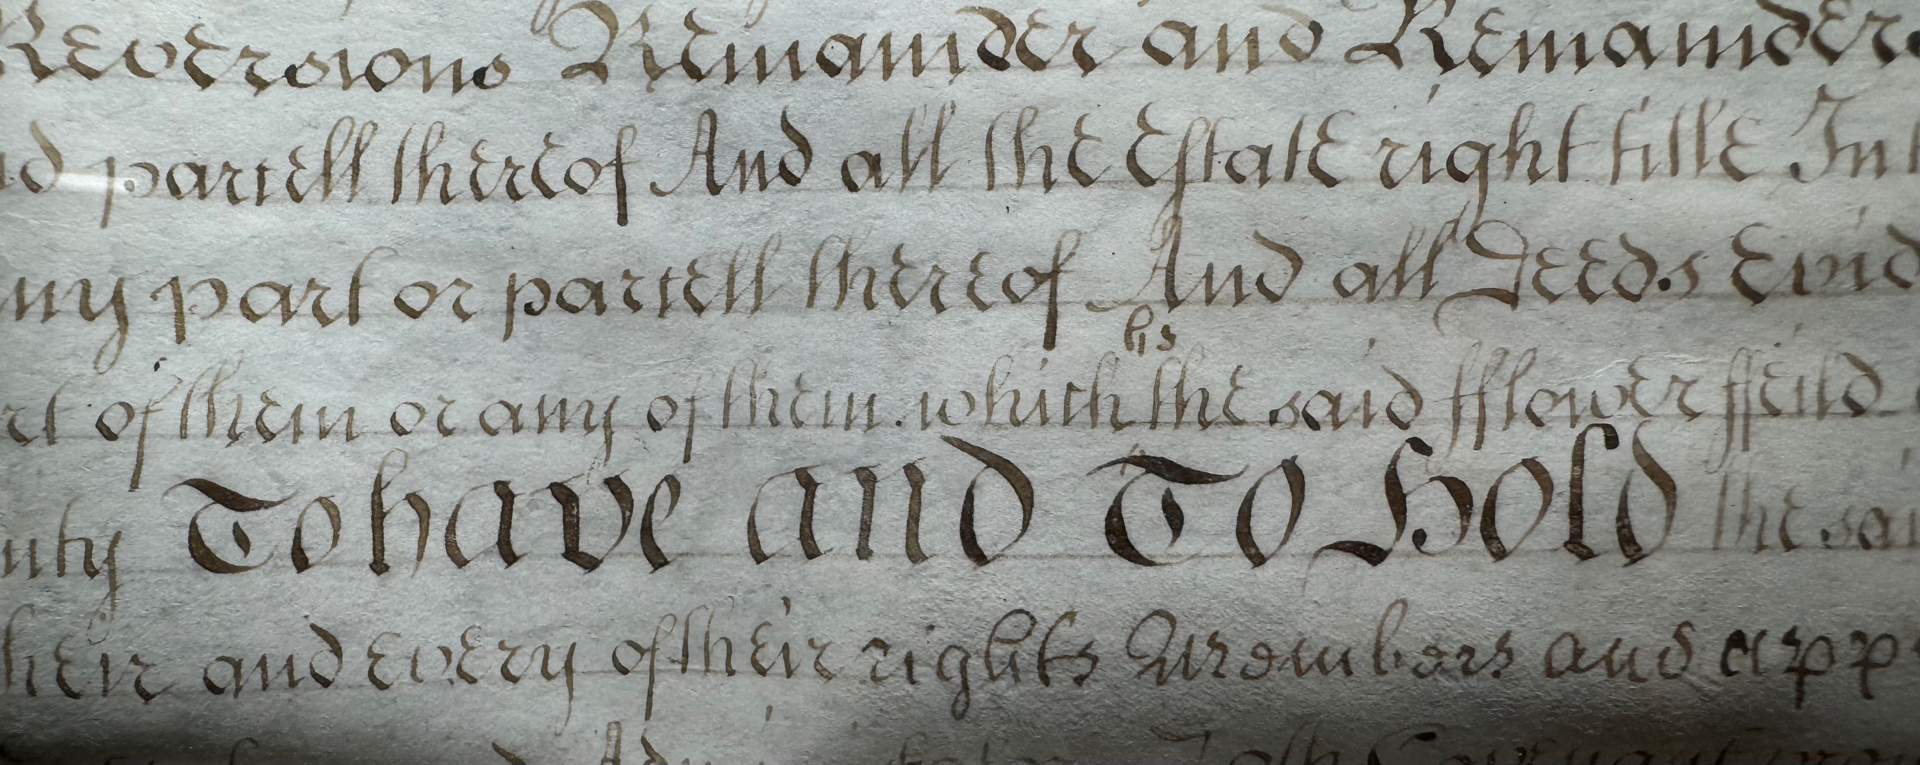 Reversions Remainder and Remainders
parcell thereof And all the estate right title Int
any part or parcell thereof And all Deeds Evid
his
rt of them or any of them which the said fflower ffeild
nty To have and To Hold the sai
their and every of their rights Members and app